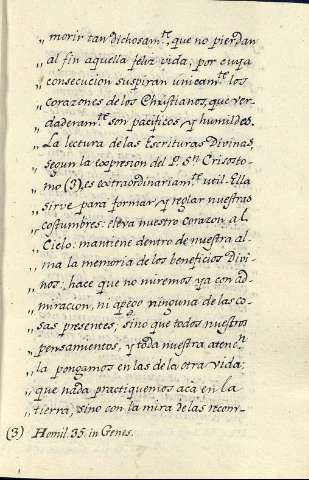 „ morir tan dichosam.te, que no pierdan
„ al fin aquella feliz vida, por cuya
„ consecucion suspiran unicam.te los
„ corazones de los Christianos, que ver-
„ daderam.te son pacificos, y humildes.
„ La lectura de las Escrituras Divinas,
„ segun la expresion del P. S.n Crisosto-
„ mo (3), es extraordinariam.te util. Ella
„ sirve para formar, y reglar nuestras
„ costumbres: eleva nuestro corazon al
„ Cielo: mantiene dentro de nuestra al-
„ ma la memoria de los beneficios Divi-
„ nos; hace que no miremos ya con ad-
„ miracion, ni apego ninguna de las co-
„ sas presentes; sino que todos nuestros
„ pensamientos, y toda nuestra atenc.n
„ la pongamos en las de la otra vida;
„ que nada practiquemos acá en la
„ tierra, sino con la mira de las recom-
(3) Homil. 35. in Genes.